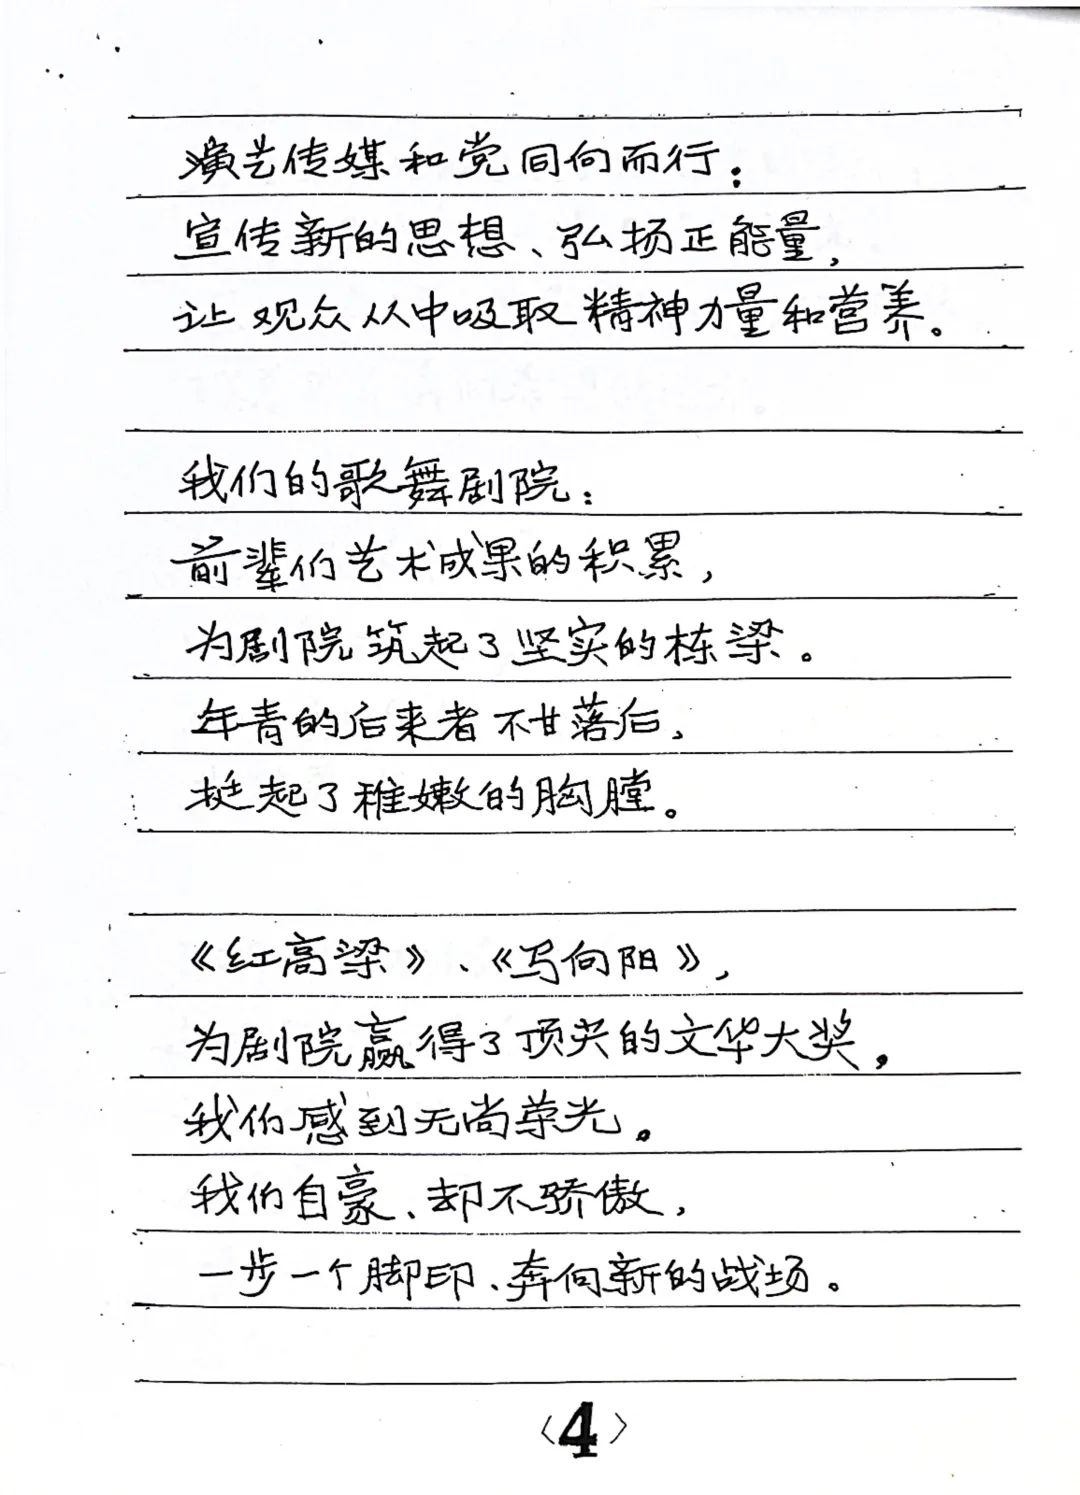 演艺传媒和党同向而行：
宣传新的思想、弘扬正能量，
让观众从中吸取精神力量和营养。
我们的歌舞剧院：
前辈们艺术成果的积累，
为剧院筑起了坚实的栋梁。
年青的后来者不甘落后，
挺起了稚嫩的胸膛。
《红高粱》、《写向阳》，
为剧院赢得了顶尖的文华大奖，
我们感到无尚荣光。
我们自豪、却不骄傲，
一步一个脚印、奔向新的战场。
〈4〉